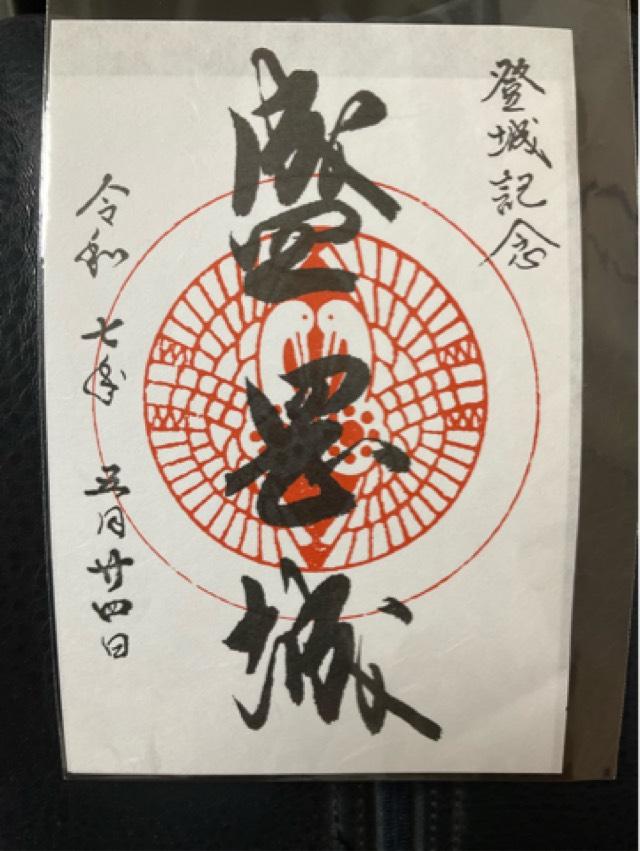 登城記念
盛岡城
令和 七年 五月廿四日